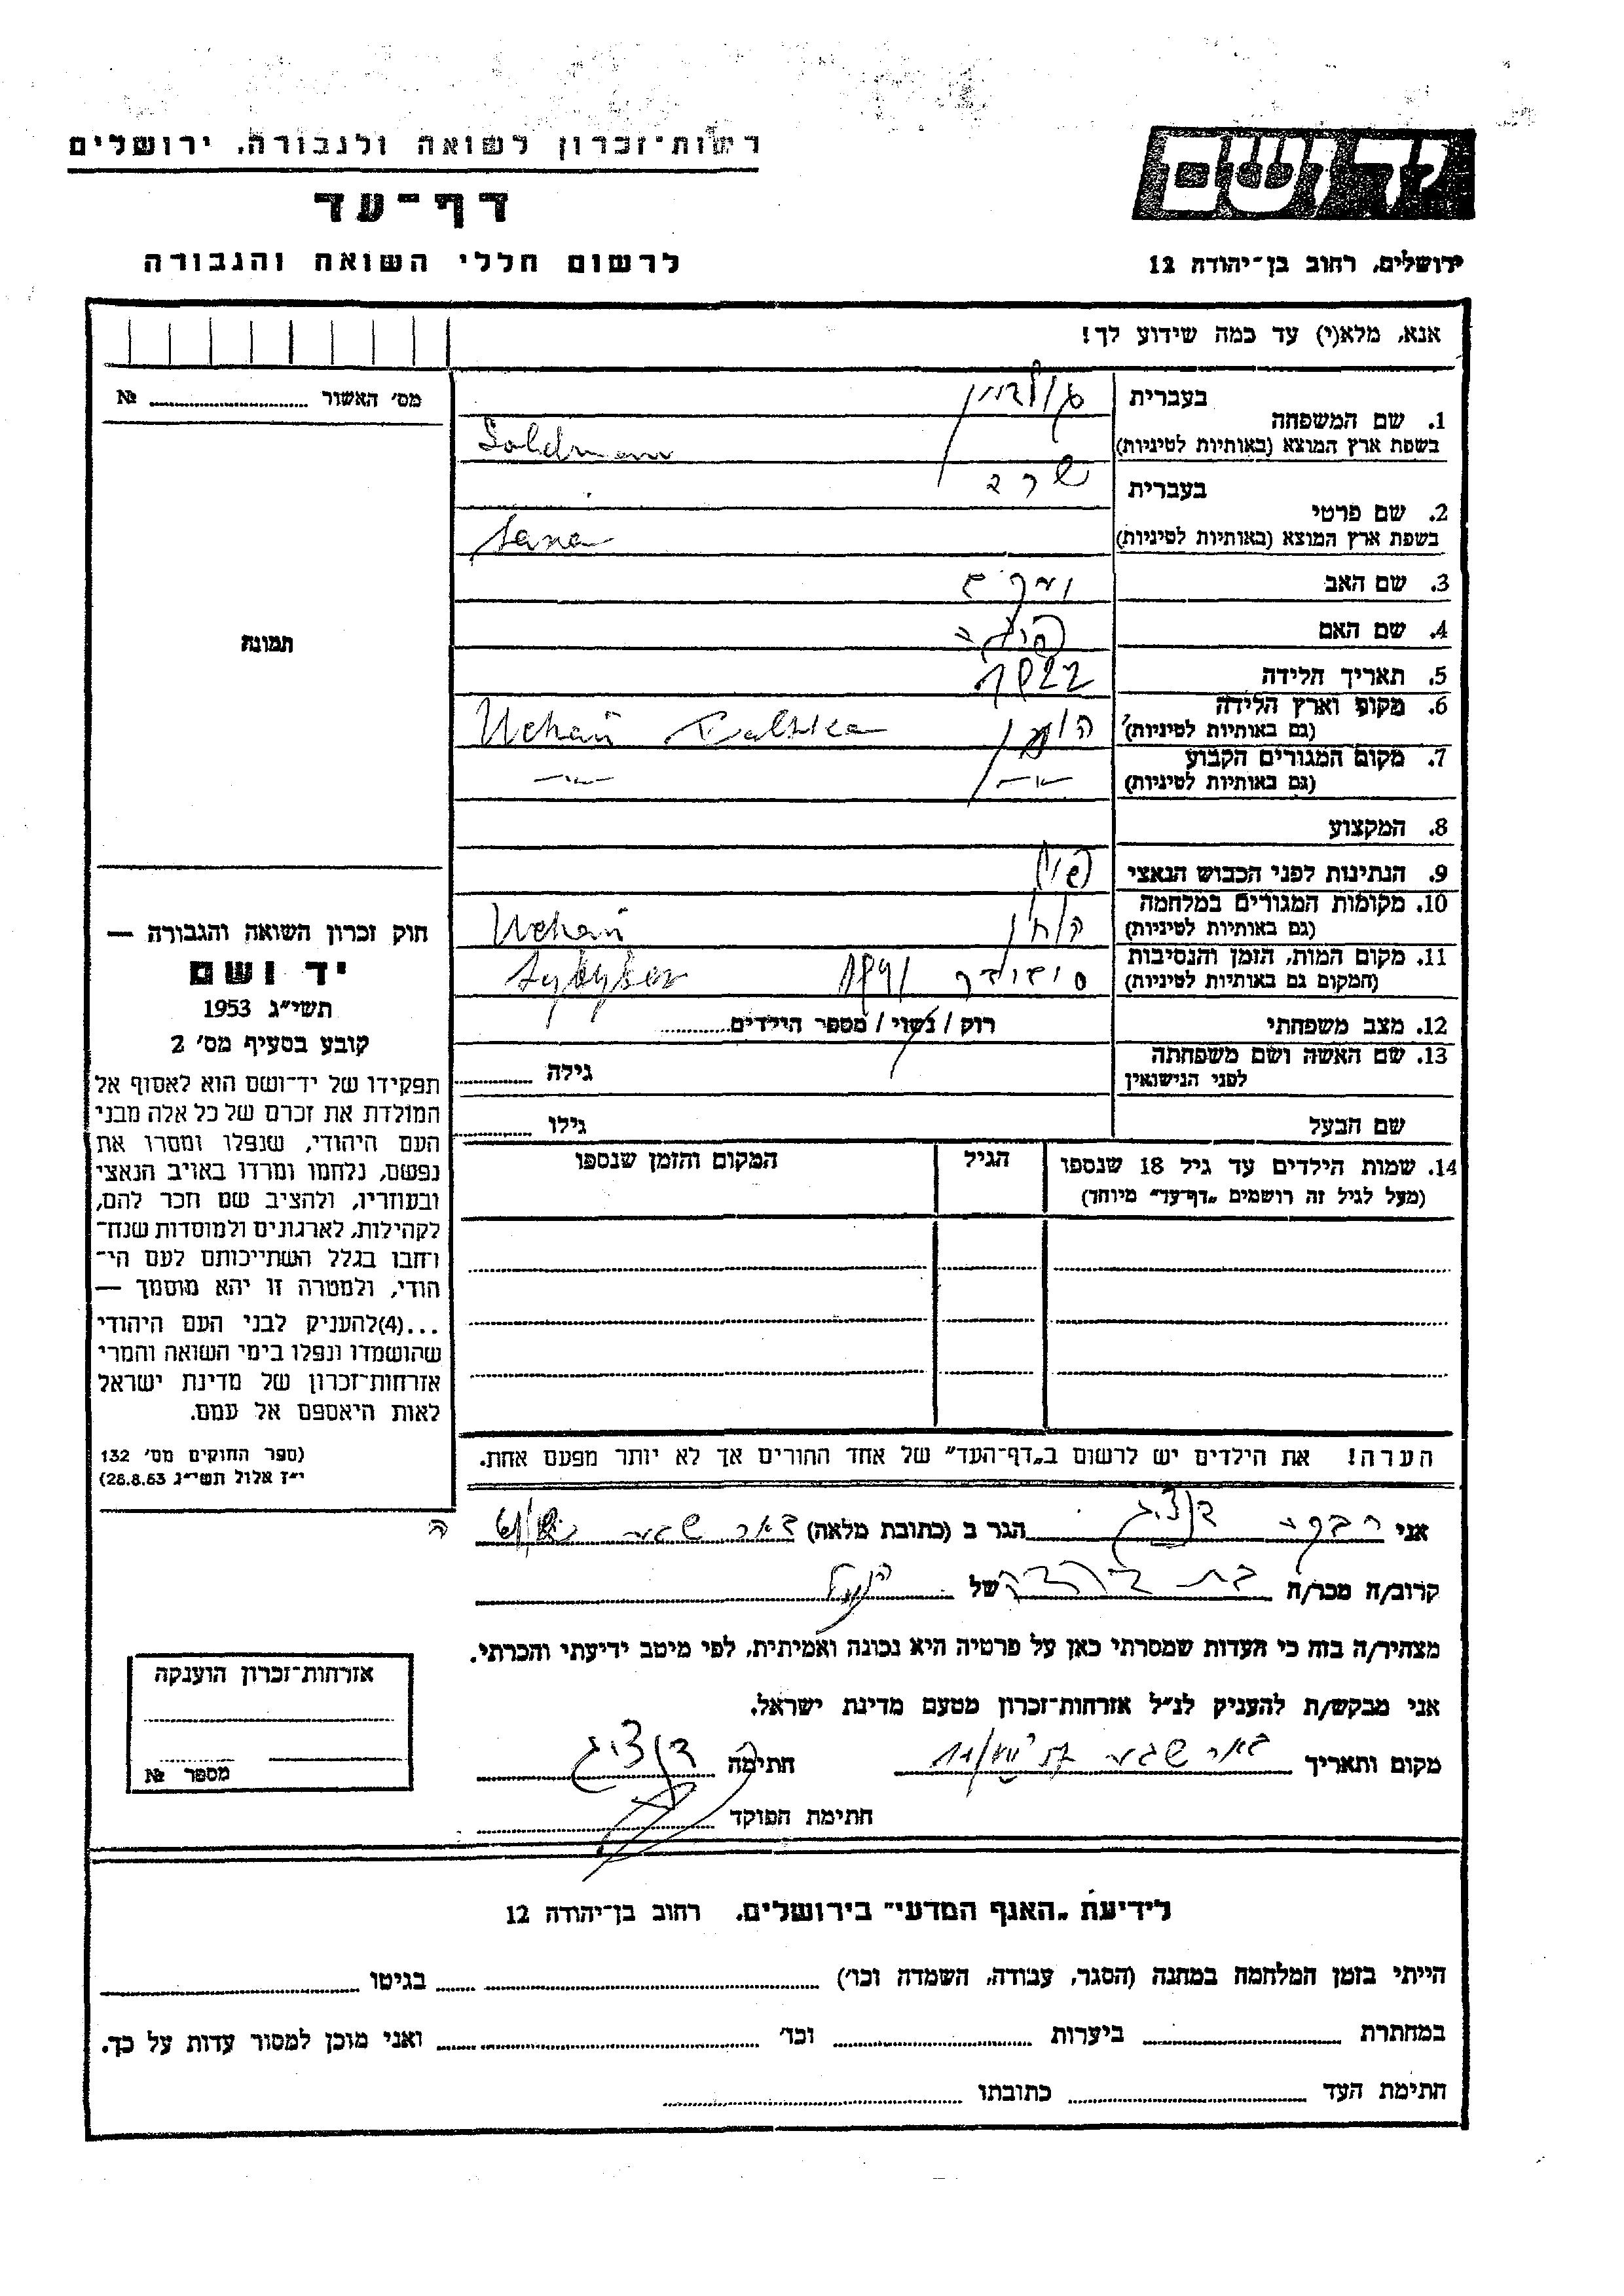 רשות־זכרון לשואה ולגבורה, ירושלים
יד ושם
דף־עד
לרשום חללי השואה והגבורה
ירושלים, רחוב בן־יהודה 12
אנא, מלא(י) עד כמה שידוע לך!
מס׳ האשור № ........
תמונה
1. שם המשפחה
בעברית גולדמן
בשפת ארץ המוצא (באותיות לטיניות) Goldman
2. שם פרטי
בעברית שרה
בשפת ארץ המוצא (באותיות לטיניות) Sara
3. שם האב
4. שם האם
5. תאריך הלידה 1922
6. מקום וארץ הלידה
(גם באותיות לטיניות) Uchań
7. מקום המגורים הקבוע
(גם באותיות לטיניות) —״— —״—
8. המקצוע
9. הנתינות לפני הכבוש הנאצי
10. מקומות המגורים במלחמה
(גם באותיות לטיניות) Uchań
11. מקום המות, הזמן והנסיבות
(המקום גם באותיות לטיניות) סוביבור
12. מצב משפחתי רוק / נשוי / מספר הילדים........
13. שם האשה ושם משפחתה
לפני הנישואין גילה ........
שם הבעל גילו ........
14. שמות הילדים עד גיל 18 שנספו
(מעל לגיל זה רושמים „דף־עד״ מיוחד)
הגיל
המקום והזמן שנספו
הערה! את הילדים יש לרשום ב„דף־העד״ של אחד ההורים אך לא יותר מפעם אחת.
חוק זכרון השואה והגבורה —
יד ושם
תשי״ג 1953
קובע בסעיף מס׳ 2
תפקידו של יד־ושם הוא לאסוף אל
המולדת את זכרם של כל אלה מבני
העם היהודי, שנפלו ומסרו את
נפשם, נלחמו ומרדו באויב הנאצי
ובעוזריו, ולהציב שם וזכר להם,
לקהילות, לארגונים ולמוסדות שנח־
רחבו בגלל השתייכותם לעם הי־
הודי, ולמטרה זו יהא מוסמך —
...(4)להעניק לבני העם היהודי
שהושמדו ונפלו בימי השואה והמרי
אזרחות־זכרון של מדינת ישראל
לאות היאספם אל עמם.
(ספר החוקים מס׳ 132
י״ז אלול תשי״ג 28.8.53)
אני רבקה דנציג הגר ב (כתובת מלאה) באר שבע
קרוב/ה מכר/ה בת דודה של הנ״ל
מצהיר/ה בזה כי העדות שמסרתי כאן על פרטיה היא נכונה ואמיתית, לפי מיטב ידיעתי והכרתי.
אני מבקש/ת להעניק לנ״ל אזרחות־זכרון מטעם מדינת ישראל.
מקום ותאריך באר שבע חתימה דנציג
חתימת הפוקד
אזרחות־זכרון הוענקה
מספר №
לידיעת „האגף המדעי״ בירושלים, רחוב בן־יהודה 12
הייתי בזמן המלחמה במחנה (הסגר, עבודה, השמדה וכו׳) ........ בגיטו ........
במחתרת ........ ביערות ........ וכד׳ ........ ואני מוכן למסור עדות על כך.
חתימת העד ........ כתובתו ........